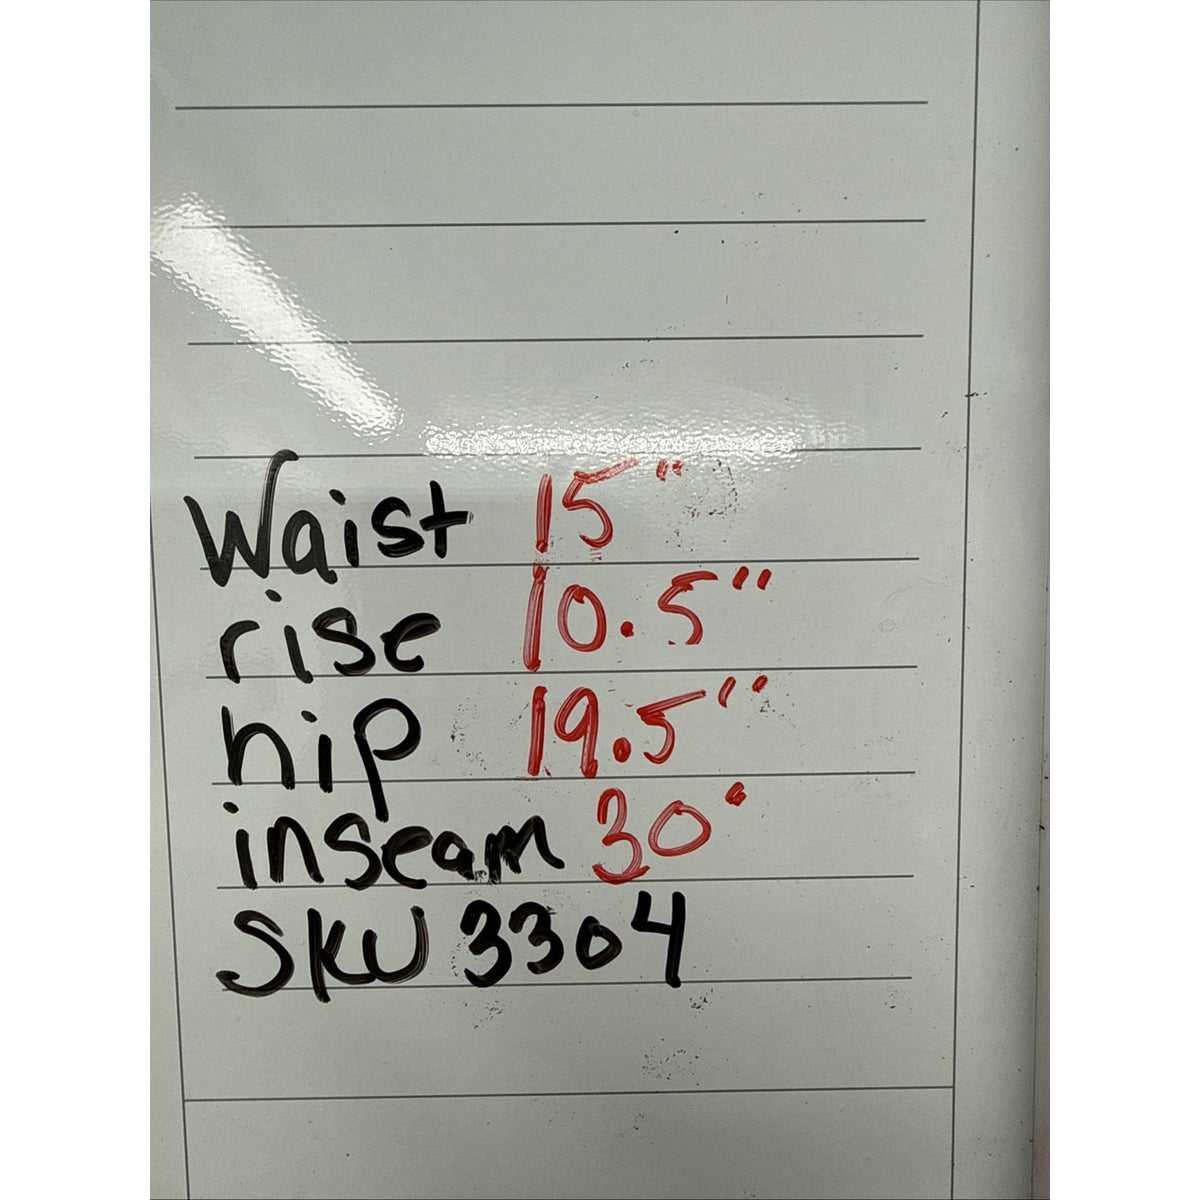 Waist 15"
rise 10.5"
hip 19.5"
inseam 30"
SKU 3304